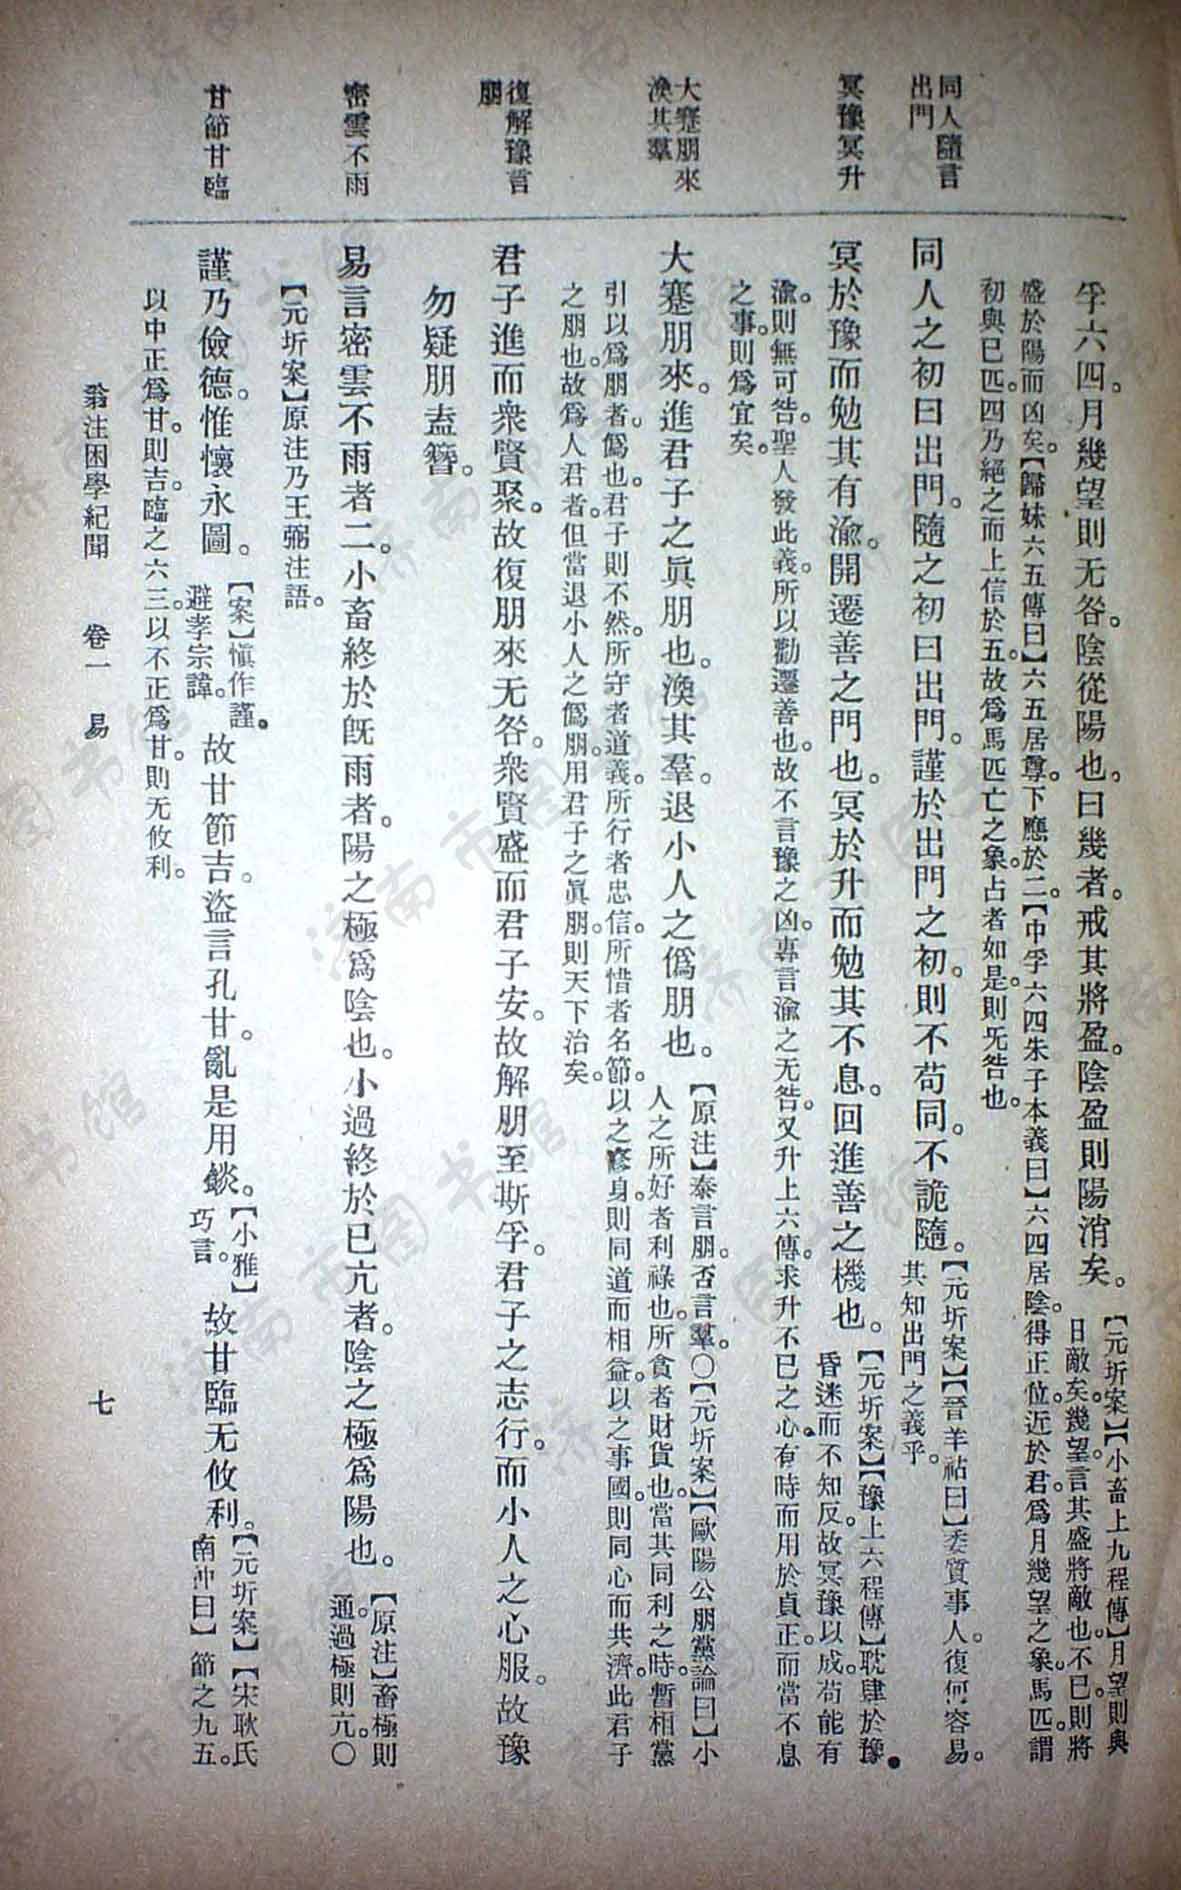 同人隨言
出門
冥豫冥升
大蹇朋來
渙其羣
復解豫言
朋
密雲不雨
甘節甘臨
孚六四。月幾望則无咎。陰從陽也。曰幾者。戒其將盈。陰盈則陽消矣。
【元圻案】【小畜上九程傳】月望則與
日敵矣。幾望。言其盛將敵也。不已則將
盛於陽而凶矣。【歸妹六五傳曰】六五居尊。下應於二。【中孚六四朱子本義曰】六四居陰。得正。位近於君。爲月幾望之象。馬匹。謂
初與已匹。四乃絕之而上信於五。故爲馬匹亡之象。占者如是。則无咎也。
同人之初曰出門。隨之初曰出門。謹於出門之初。則不苟同。不詭隨。
【元圻案】【晉羊祜曰】委質事人。復何容易。
其知出門之義乎。
冥於豫而勉其有渝。開遷善之門也。冥於升而勉其不息。回進善之機也。
【元圻案】【豫上六程傳】耽肆於豫。
昏迷而不知反。故冥豫以成。苟能有
渝。則無可咎。聖人發此義。所以勸遷善也。故不言豫之凶。專言渝之无咎。又升上六傳。求升不已之心。有時而用於貞正。而當不息
之事。則爲宜矣。
大蹇朋來。進君子之眞朋也。渙其羣。退小人之僞朋也。
【原注】泰言朋。否言羣。○【元圻案】【歐陽公朋黨論曰】小
人之所好者利祿也。所貪者財貨也。當其同利之時。暫相黨
引以爲朋者。僞也。君子則不然。所守者道義。所行者忠信。所惜者名節。以之修身。則同道而相益。以之事國。則同心而共濟。此君子
之朋也。故爲人君者。但當退小人之僞朋。用君子之眞朋。則天下治矣。
君子進而衆賢聚。故復朋來无咎。衆賢盛而君子安。故解朋至斯孚。君子之志行。而小人之心服。故豫
勿疑朋盍簪。
易言密雲不雨者二。小畜終於旣雨者。陽之極爲陰也。小過終於已亢者。陰之極爲陽也。
【原注】畜極則
通。過極則亢。○
【元圻案】原注乃王弼注語。
謹乃儉德。惟懷永圖。
【案】愼作謹。
避孝宗諱。
故甘節吉。盜言孔甘。亂是用餤。
【小雅】
巧言。
故甘臨无攸利。
【元圻案】【宋耿氏
南仲曰】節之九五。
以中正爲甘。則吉。臨之六三。以不正爲甘。則无攸利。
翁注困學紀聞 卷一 易
七